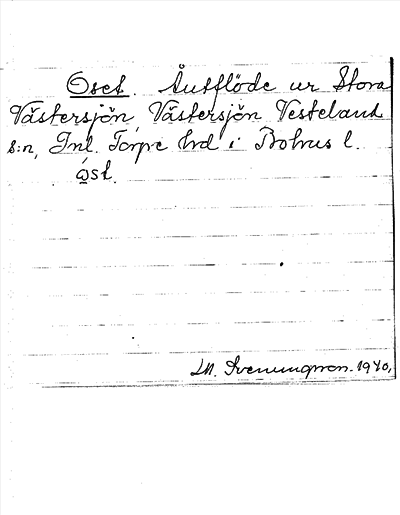 Oset. Åutflöde ur Stora
Västersjön, Västersjön Vesteland
s:n, Inl. Torpe hrd i Bohus l.
ǫ́st.
M. Svenungsson. 1940.